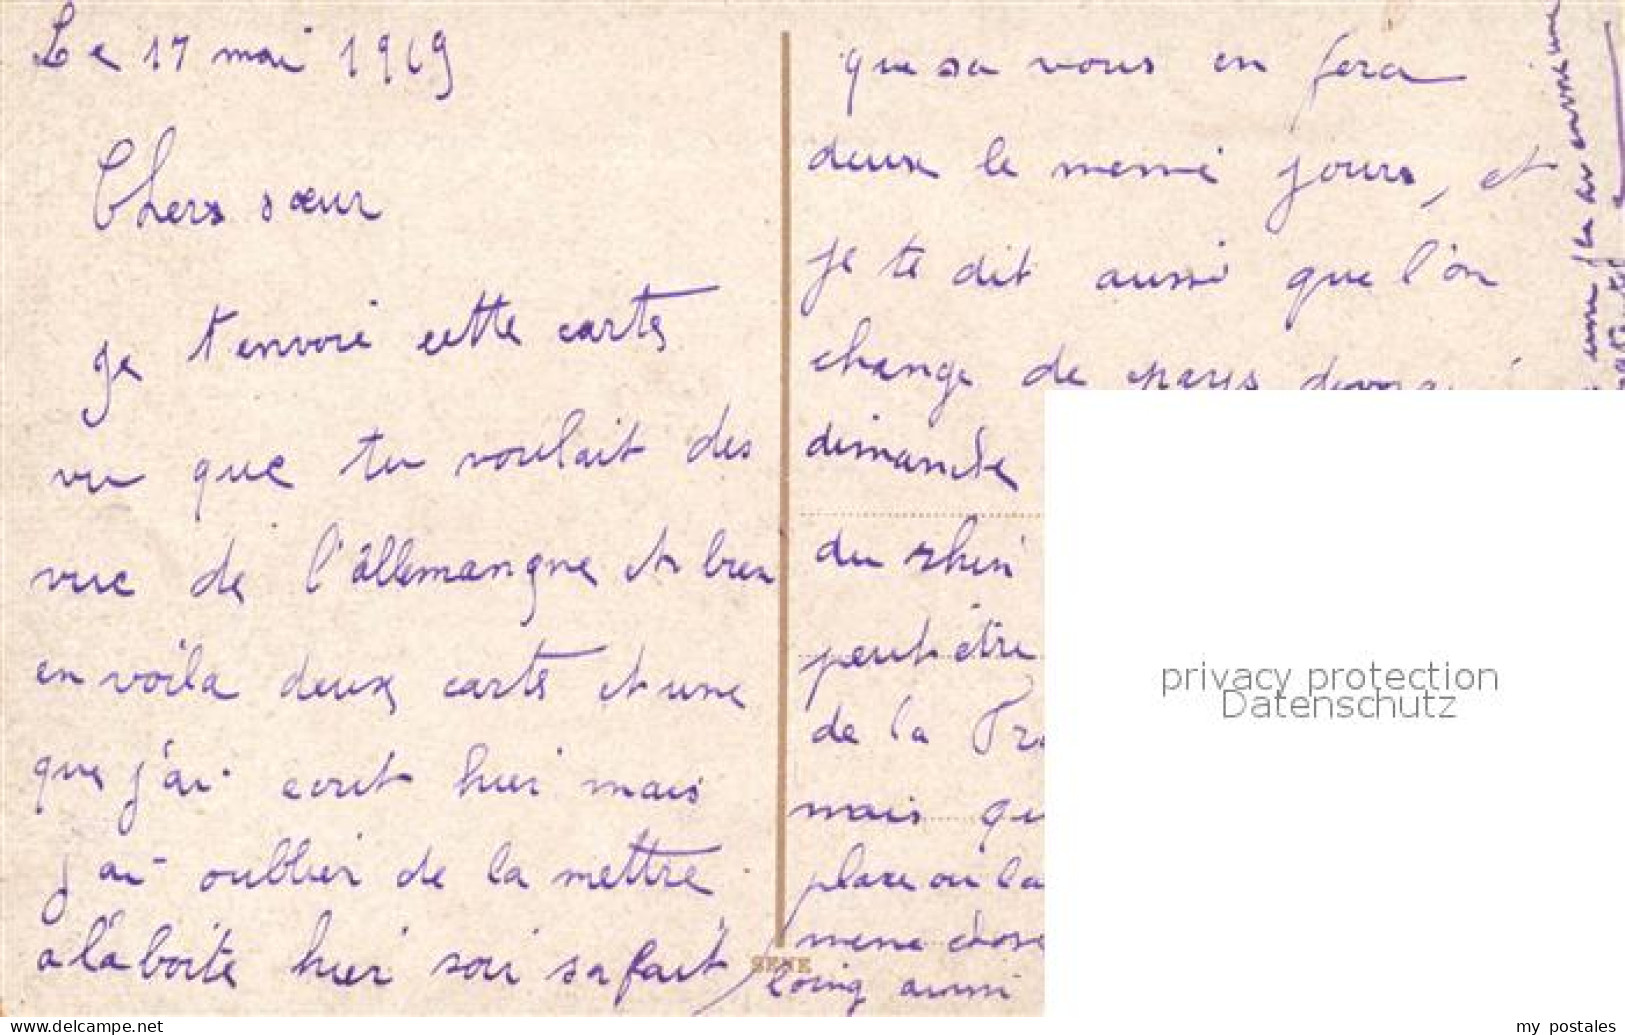 Le 17 mai 1919
Chers sœur
je t'envoie cette carte
vu que tu voulait des
vue de l'allemangne et bien
en voila deux carte et une
que j'ai ecrit hier mais
j'ai oublier de la mettre
a la boite hier soir sa fait
que sa vous en fera
deux le meme jours, et
je te dit aussi que l'on
change de pays
dimanche
du rhin
peut être
de la
mais
place ou la
meme chose
loing aussi
SENE
privacy protection
Datenschutz
www.delcampe.net
my_postales